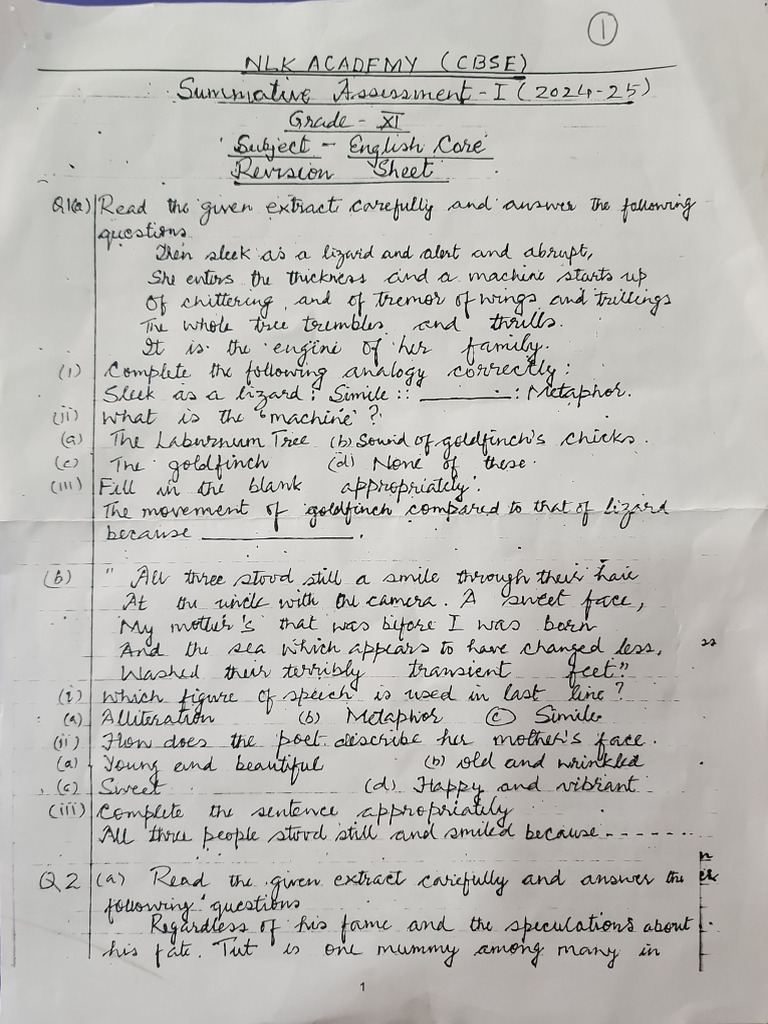 1
NLK ACADEMY (CBSE)
Summative Assessment - I (2024-25)
Grade - XI
Subject - English Core
Revision Sheet
Q1(a) Read the given extract carefully and answer the following
questions
Then sleek as a lizard and alert and abrupt,
She enters the thickness and a machine starts up
Of chittering, and of tremor of wings and trillings
The whole tree trembles and thrills.
It is the engine of her family.
(i) Complete the following analogy correctly:
Sleek as a lizard : Simile :: ________ : Metaphor.
(ii) What is the "machine"?
(a) The Laburnum Tree (b) Sound of goldfinch's chicks.
(c) The goldfinch (d) None of these.
(iii) Fill in the blank appropriately.
The movement of goldfinch compared to that of lizard
because ____________.
(b) " All three stood still a smile through their hair
At the uncle with the camera. A sweet face,
My mother's that was before I was born
And the sea which appears to have changed less,
Washed their terribly transient feet."
(i) Which figure of speech is used in last line?
(a) Alliteration (b) Metaphor (c) Simile
(ii) How does the poet describe her mother's face.
(a) Young and beautiful (b) old and wrinkled
(c) Sweet (d) Happy and vibrant
(iii) Complete the sentence appropriately
All three people stood still and smiled because -------
Q2 (a) Read the given extract carefully and answer the
following questions
Regardless of his fame and the speculations about
his fate. Tut is one mummy among many in
1